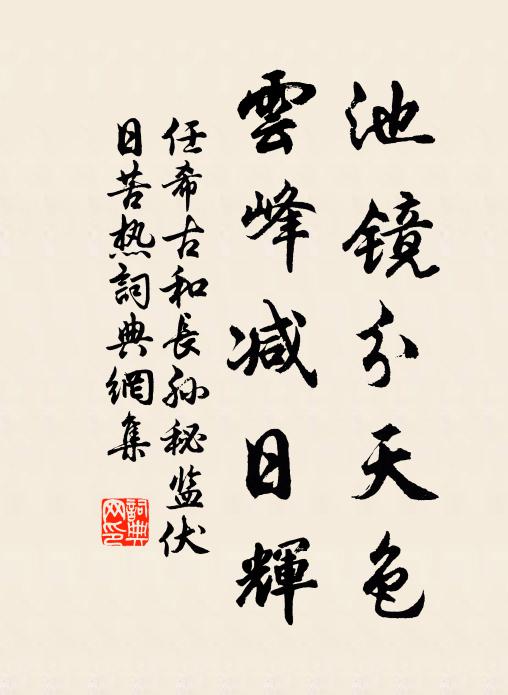 池镜分天色
雲峰减日輝
任希古和長孙秘监伏
日苦热詞典網集
詞典
网印